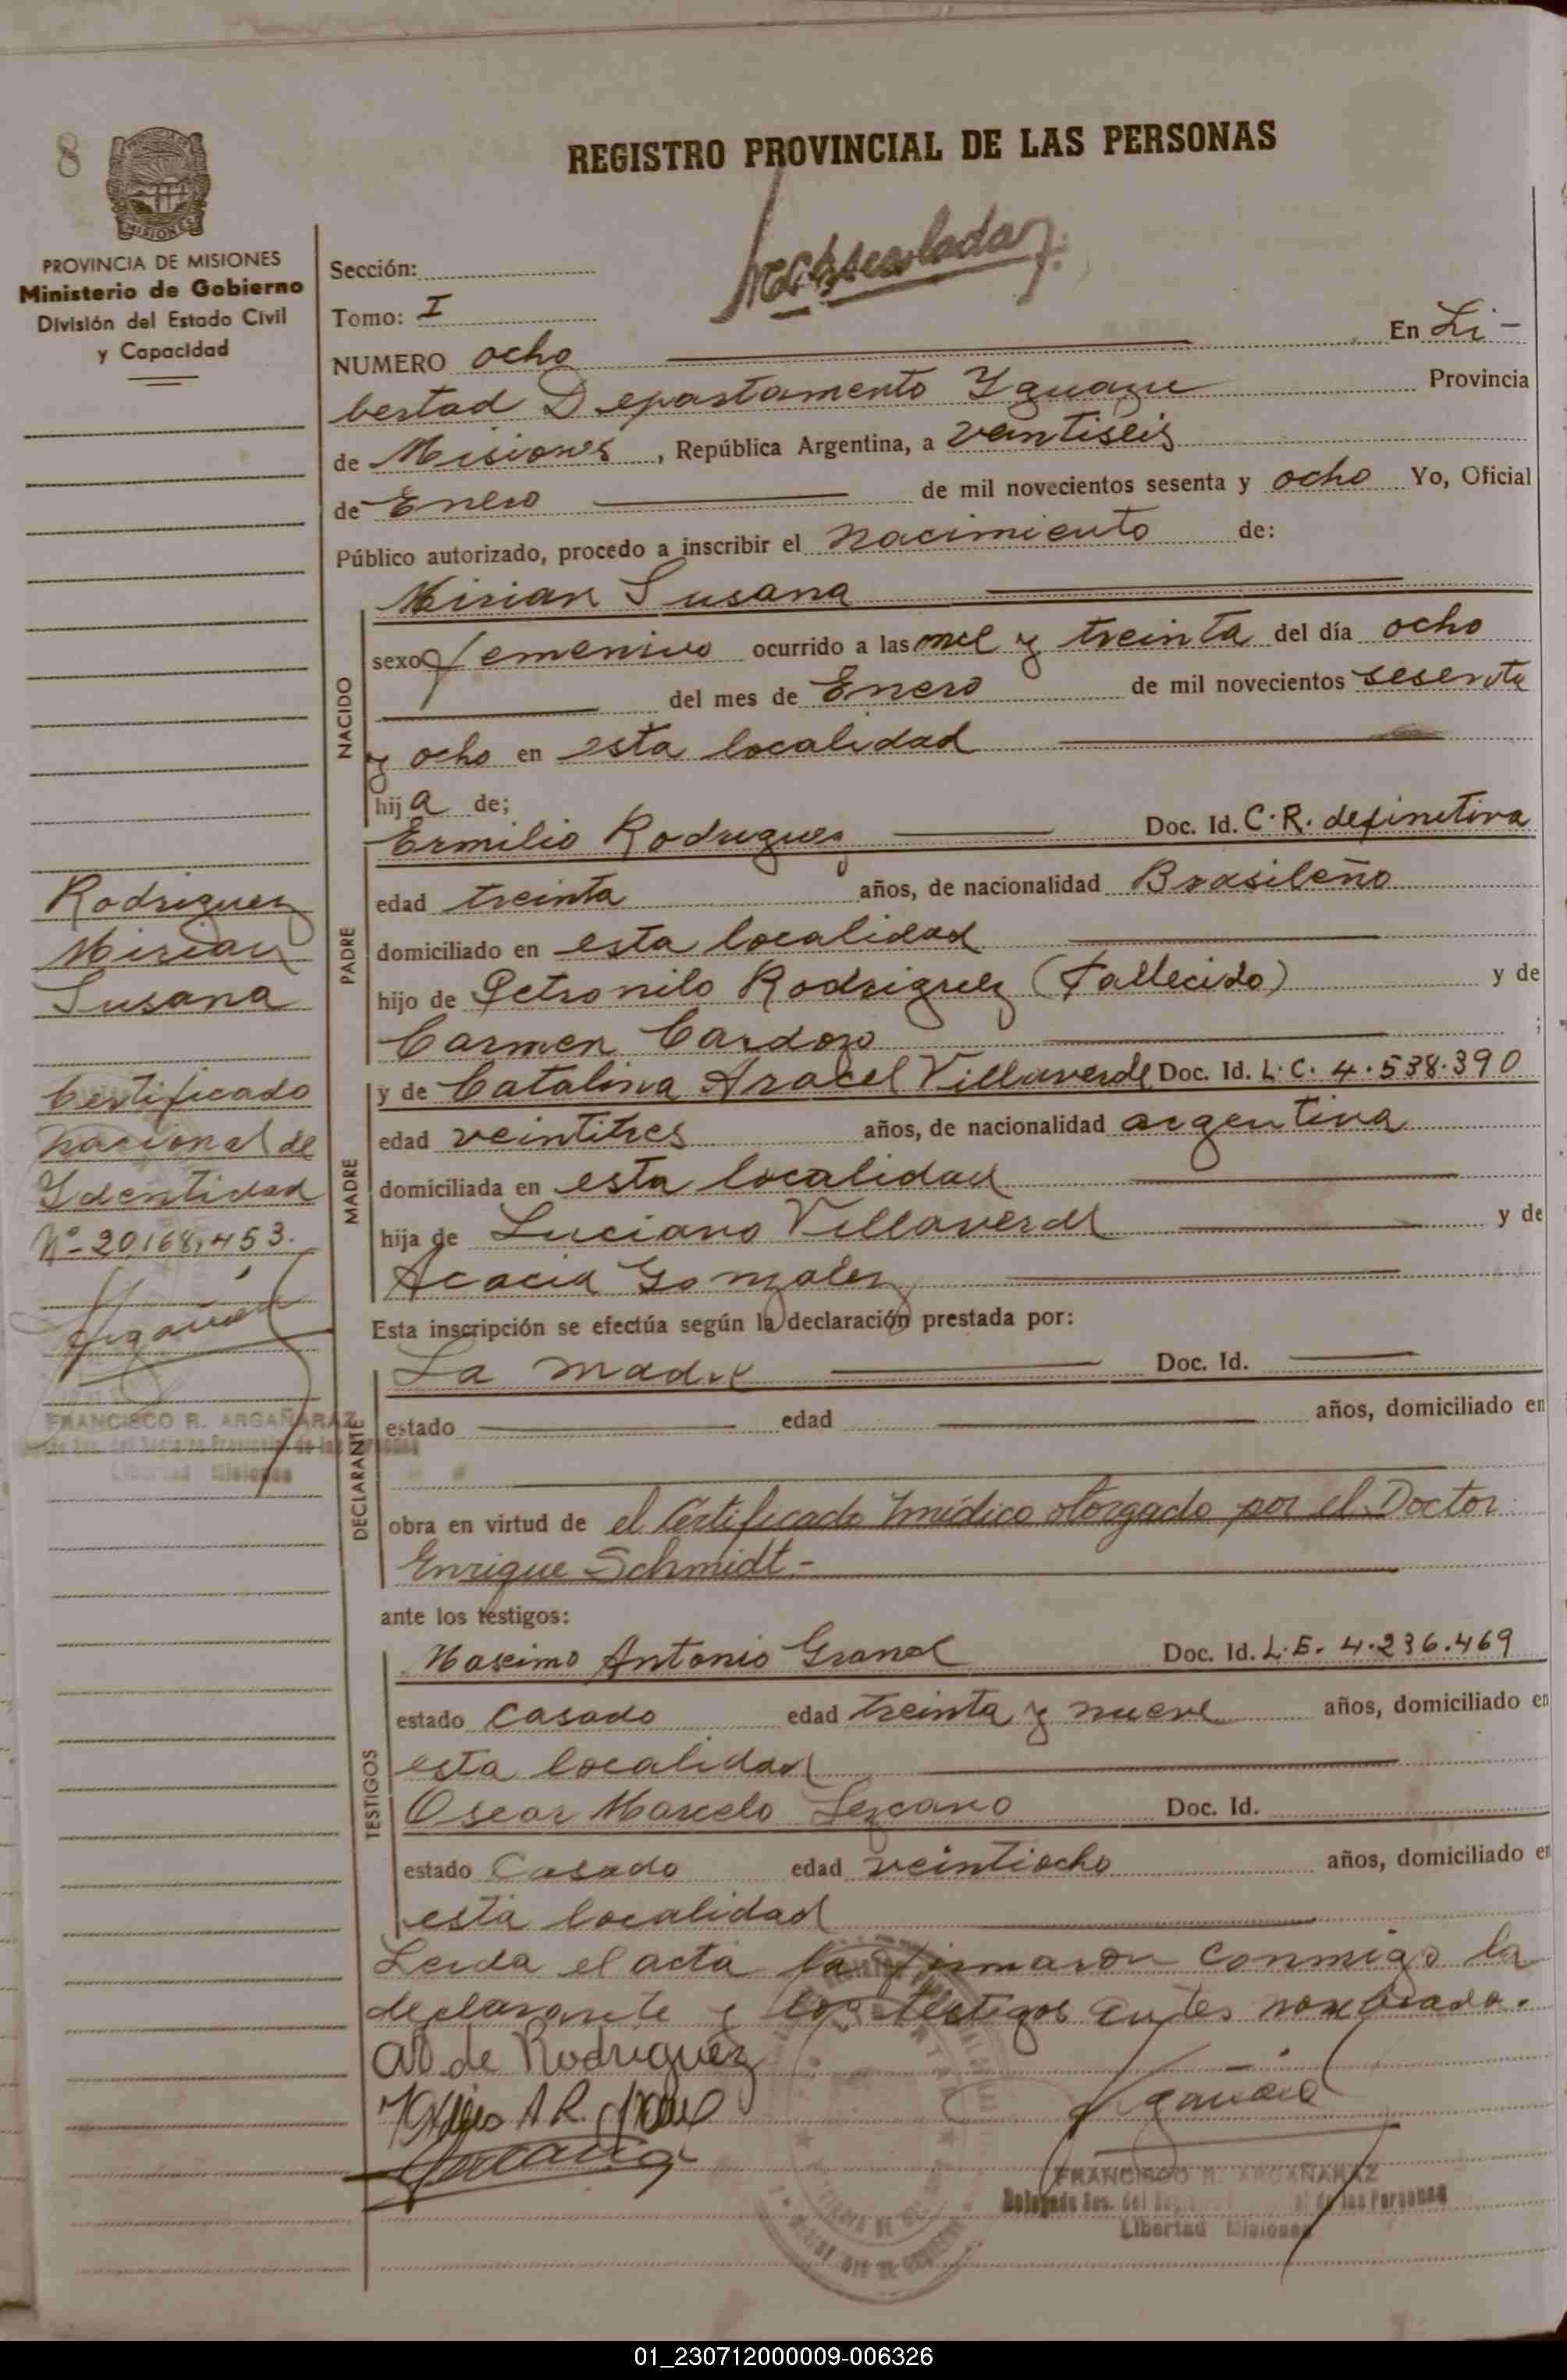 8
REGISTRO PROVINCIAL DE LAS PERSONAS
MISIONES
PROVINCIA DE MISIONES
Ministerio de Gobierno
División del Estado Civil
y Capacidad
Sección:
Tomo: I
NUMERO ocho En Li-
bertad Departamento Yguazu Provincia
de Misiones, República Argentina, a veintiseis
de Enero de mil novecientos sesenta y ocho Yo, Oficial
Público autorizado, procedo a inscribir el nacimiento de:
NACIDO
Mirian Susana
sexo femenino ocurrido a las y treinta del día ocho
del mes de Enero de mil novecientos sesenta
y ocho en esta localidad
hija de;
PADRE
Ermilio Rodriguez Doc. Id. C.R. definitiva
edad treinta años, de nacionalidad Brasileño
domiciliado en esta localidad
hijo de Petronilo Rodriguez (Fallecido) y de
Carmen Cardozo ;
MADRE
y de Catalina Aracel Villaverde Doc. Id. L.C. 4.538.390
edad veintitres años, de nacionalidad argentina
domiciliada en esta localidad
hija de Luciano Villaverde y de
Acacia Gonzalez
Esta inscripción se efectúa según la declaración prestada por:
DECLARANTE
La madre Doc. Id.
estado edad años, domiciliado en
obra en virtud de el Certificado médico otorgado por el Doctor
Enrique Schmidt.-
ante los testigos:
TESTIGOS
Maximo Antonio Doc. Id. L.E. 4.236.469
estado casado edad treinta y nueve años, domiciliado en
esta localidad
Oscar Marcelo Lezcano Doc. Id.
estado Casado edad veintiocho años, domiciliado en
esta localidad
Leida el acta la firmaron conmigo la
declarante y los testigos antes nombrado.
de Rodriguez
FRANCISCO R. ARGAÑARAZ
Libertad Misiones
Rodriguez
Mirian
Susana
Certificado
nacional de
Ydentidad
Nº 20,168,453.
FRANCISCO R. ARGAÑARAZ
Libertad Misiones
01_230712000009-006326